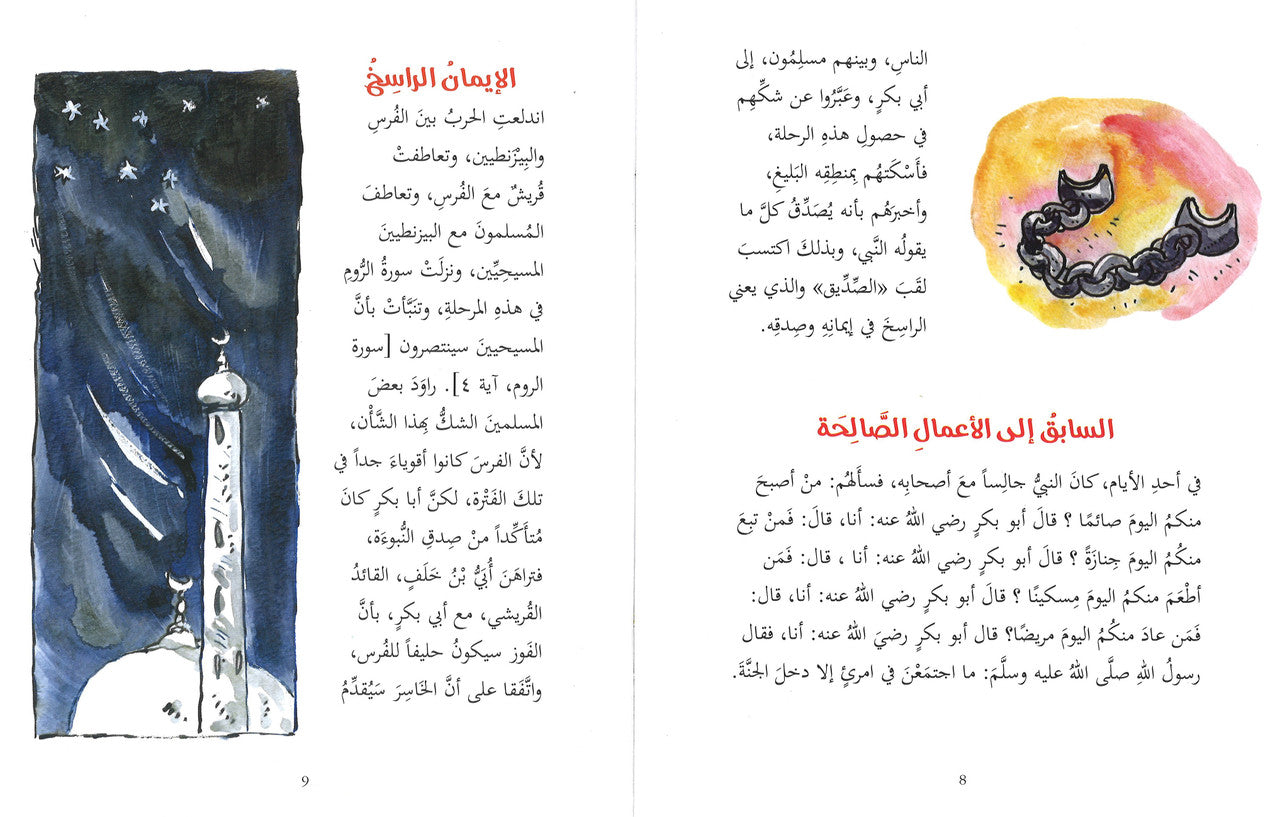 الناسِ، وبينهم مسلِمُون، إلى
أبي بكرٍ، وعَبَّرُوا عن شكِّهِم
في حصولِ هذهِ الرحلة،
فأَسْكَتهُم بِمنطِقِه البَليغِ،
وأخبرَهُم بأنه يُصَدِّقُ كلَّ ما
يقولُه النَّبي، وبذلكَ اكتسبَ
لقبَ «الصِّدِّيق» والذي يعني
الراسِخَ في إيمانِهِ وصِدقِه.
السابقُ إلى الأعمالِ الصَّالِحَة
في أحدِ الأيام، كانَ النبيُّ جالِساً معَ أصحابِه، فسأَلهُم: منْ أصبحَ
منكمُ اليومَ صائمًا ؟ قالَ أبو بكرٍ رضي اللهُ عنه: أنا، قالَ: فَمنْ تبِعَ
منكُمُ اليومَ جِنازَةً ؟ قالَ أبو بكرٍ رضي اللهُ عنه: أنا ، قال: فَمَن
أطْعَمَ منكمُ اليومَ مِسكينًا ؟ قالَ أبو بكرٍ رضي اللهُ عنه: أنا، قال:
فَمَن عادَ منكمُ اليومَ مريضًا؟ قال أبو بكرٍ رضيَ اللهُ عنه: أنا، فقال
رسولُ اللهِ صلَّى اللهُ عليه وسلَّمَ: ما اجتمَعْنَ في امرئٍ إلا دخلَ الجنَّةَ.
8
الإيمانُ الراسِخُ
اندلعتِ الحربُ بينَ الفُرسِ
والبِيْزَنطيين، وتعاطفتْ
قُريشٌ معَ الفُرسِ، وتعاطفَ
المُسلمونَ مع البيزنطيينَ
المسيحِيِّين، ونزلَتْ سورةُ الرُّومِ
في هذهِ المرحلةِ، وتنَبَّأتْ بأنَّ
المسيحيينَ سينتصرون [سورة
الروم، آية ٤]. راوَدَ بعضَ
المسلمينَ الشكُّ بِهذا الشَّأْن،
لأنَّ الفرسَ كانوا أقوياءَ جداً في
تلكَ الفَتْرة، لكنَّ أبا بكرٍ كانَ
مُتأَكِّداً منْ صِدقِ النُّبوءَة،
فتراهَنَ أُبَيُّ بْنُ خَلَفٍ، القائدُ
القُريشي، مع أبي بكرٍ، بأنَّ
الفَوز سيكونُ حليفاً للفُرس،
واتَّفَقا على أنَّ الخَاسِرَ سَيُقدِّمُ
9